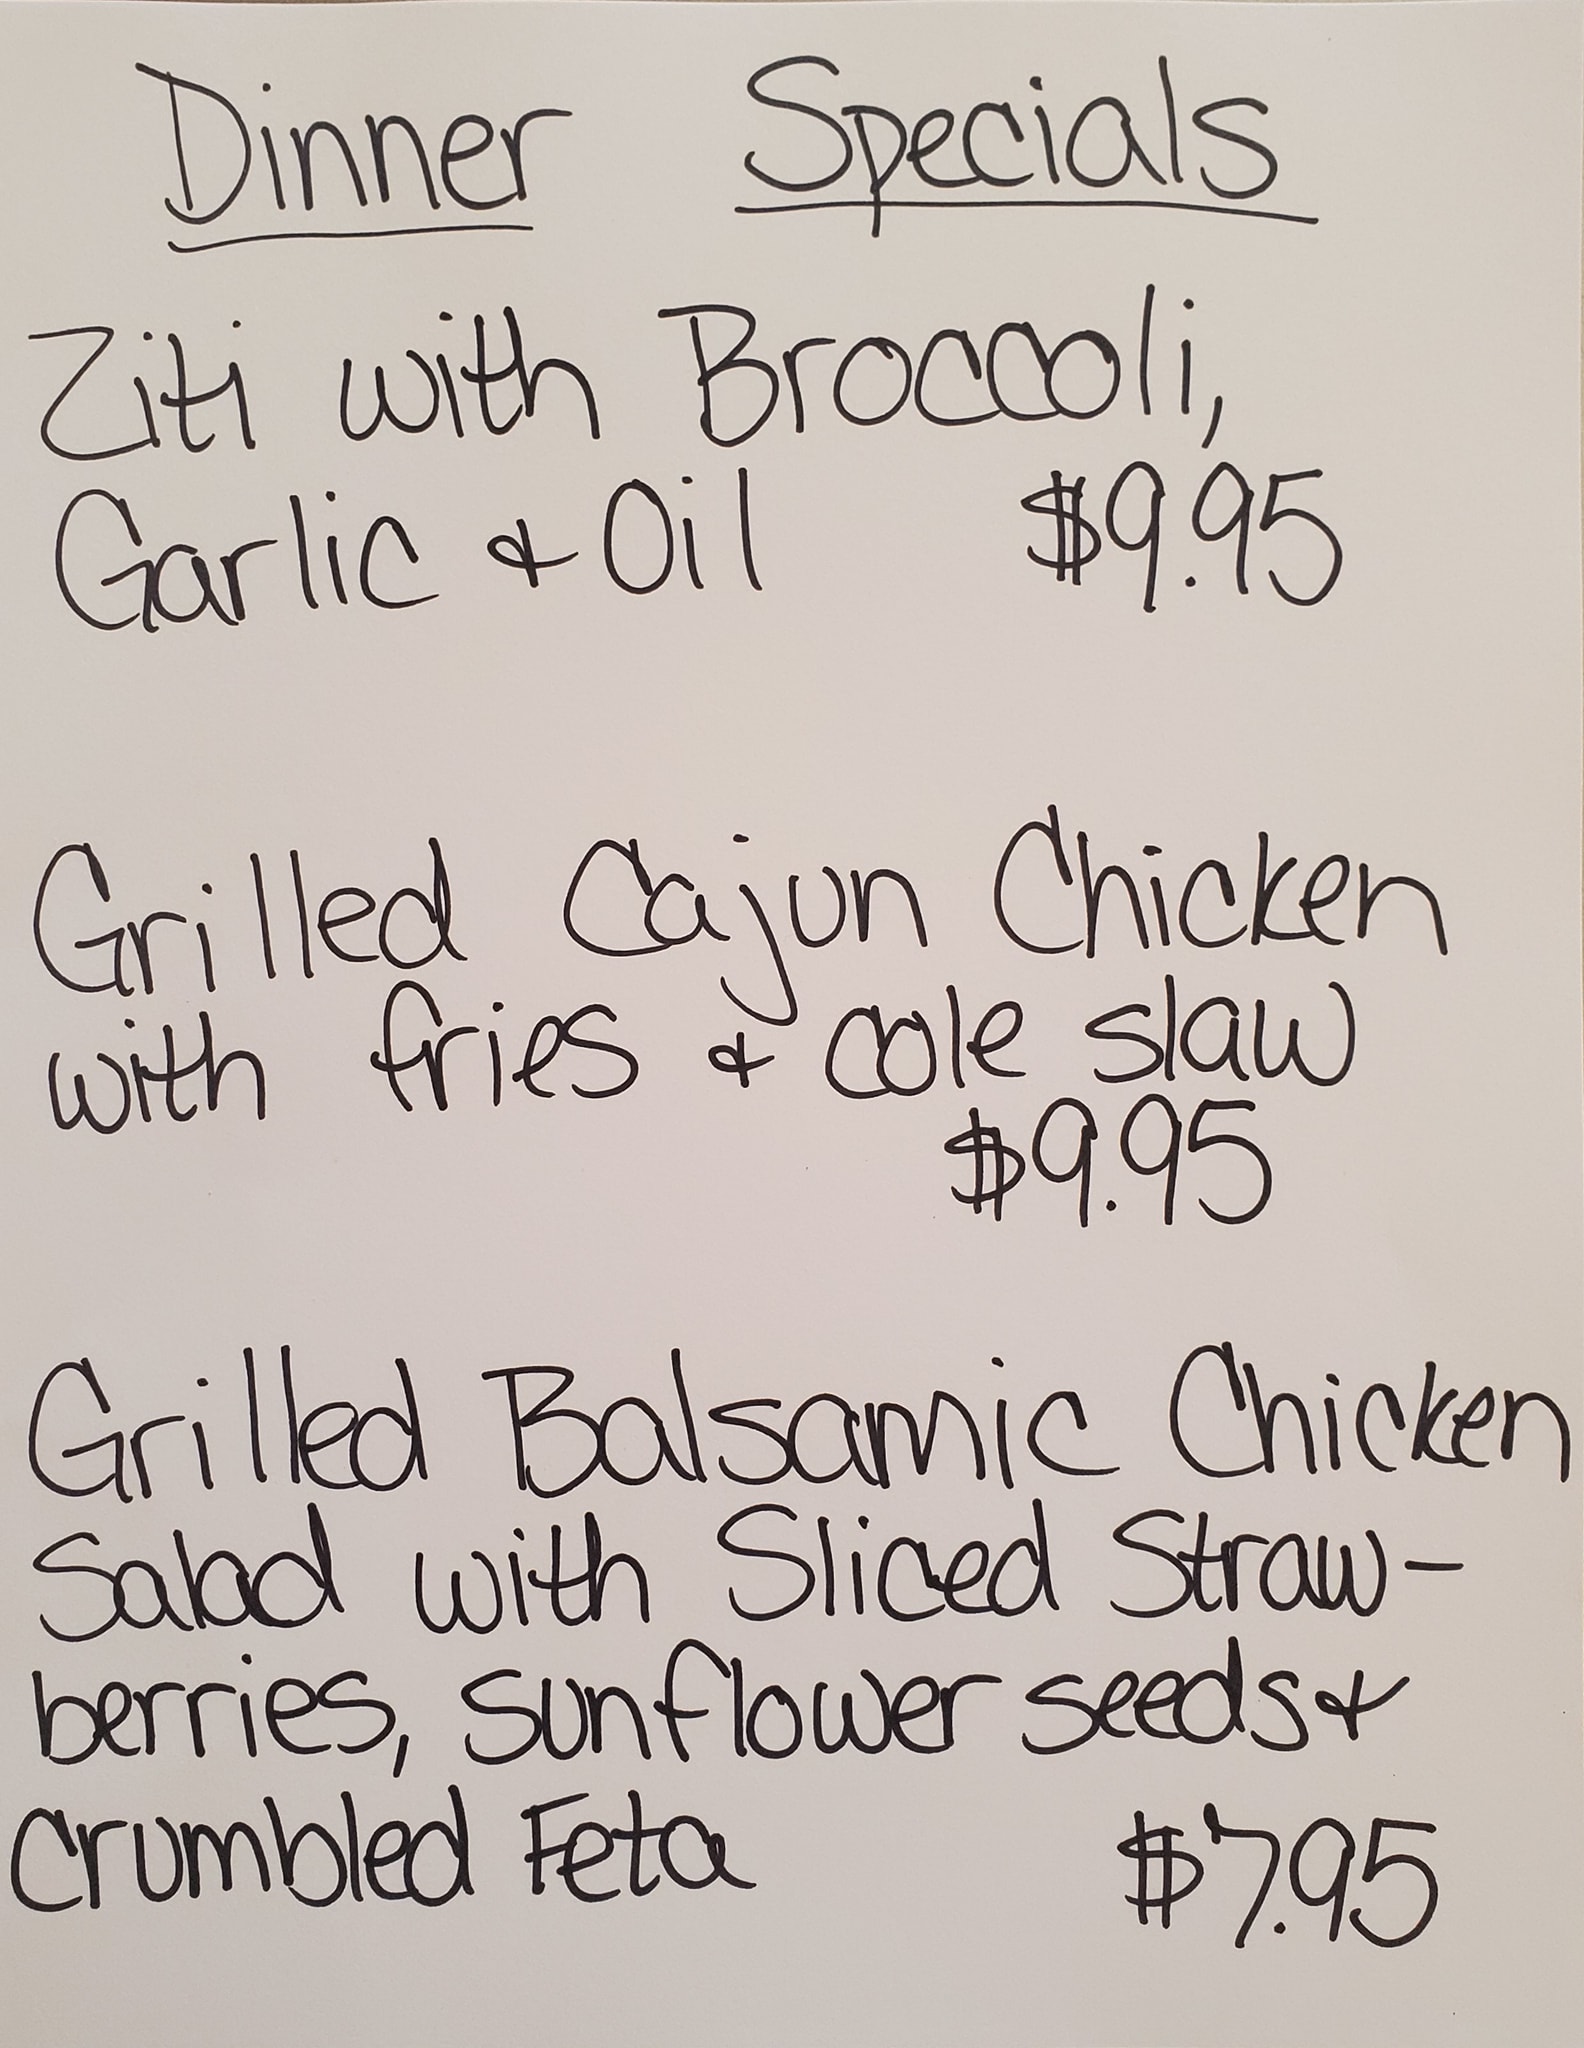 Dinner Specials
Ziti with Broccoli,
Garlic & Oil $9.95
Grilled Cajun Chicken
with fries & cole slaw
$9.95
Grilled Balsamic Chicken
Salad with Sliced Straw-
berries, sunflower seeds &
Crumbled Feta $7.95